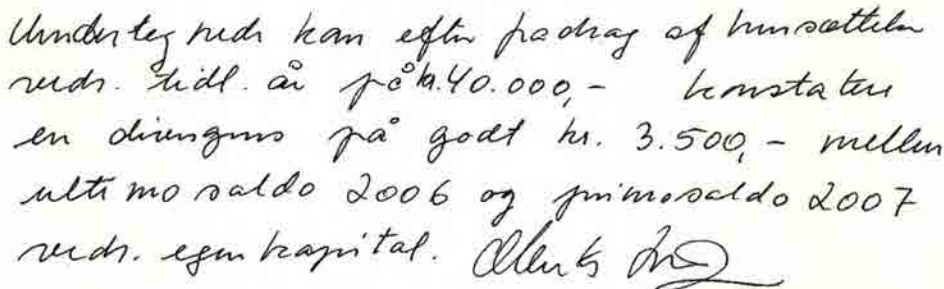 Undertegnede kan efter fradrag af hensættelse
vedr. tidl. år på kr. 40.000,- konstatere
en divergens på godt kr. 3.500,- mellem
ultimo saldo 2006 og primosaldo 2007
vedr. egenkapital.